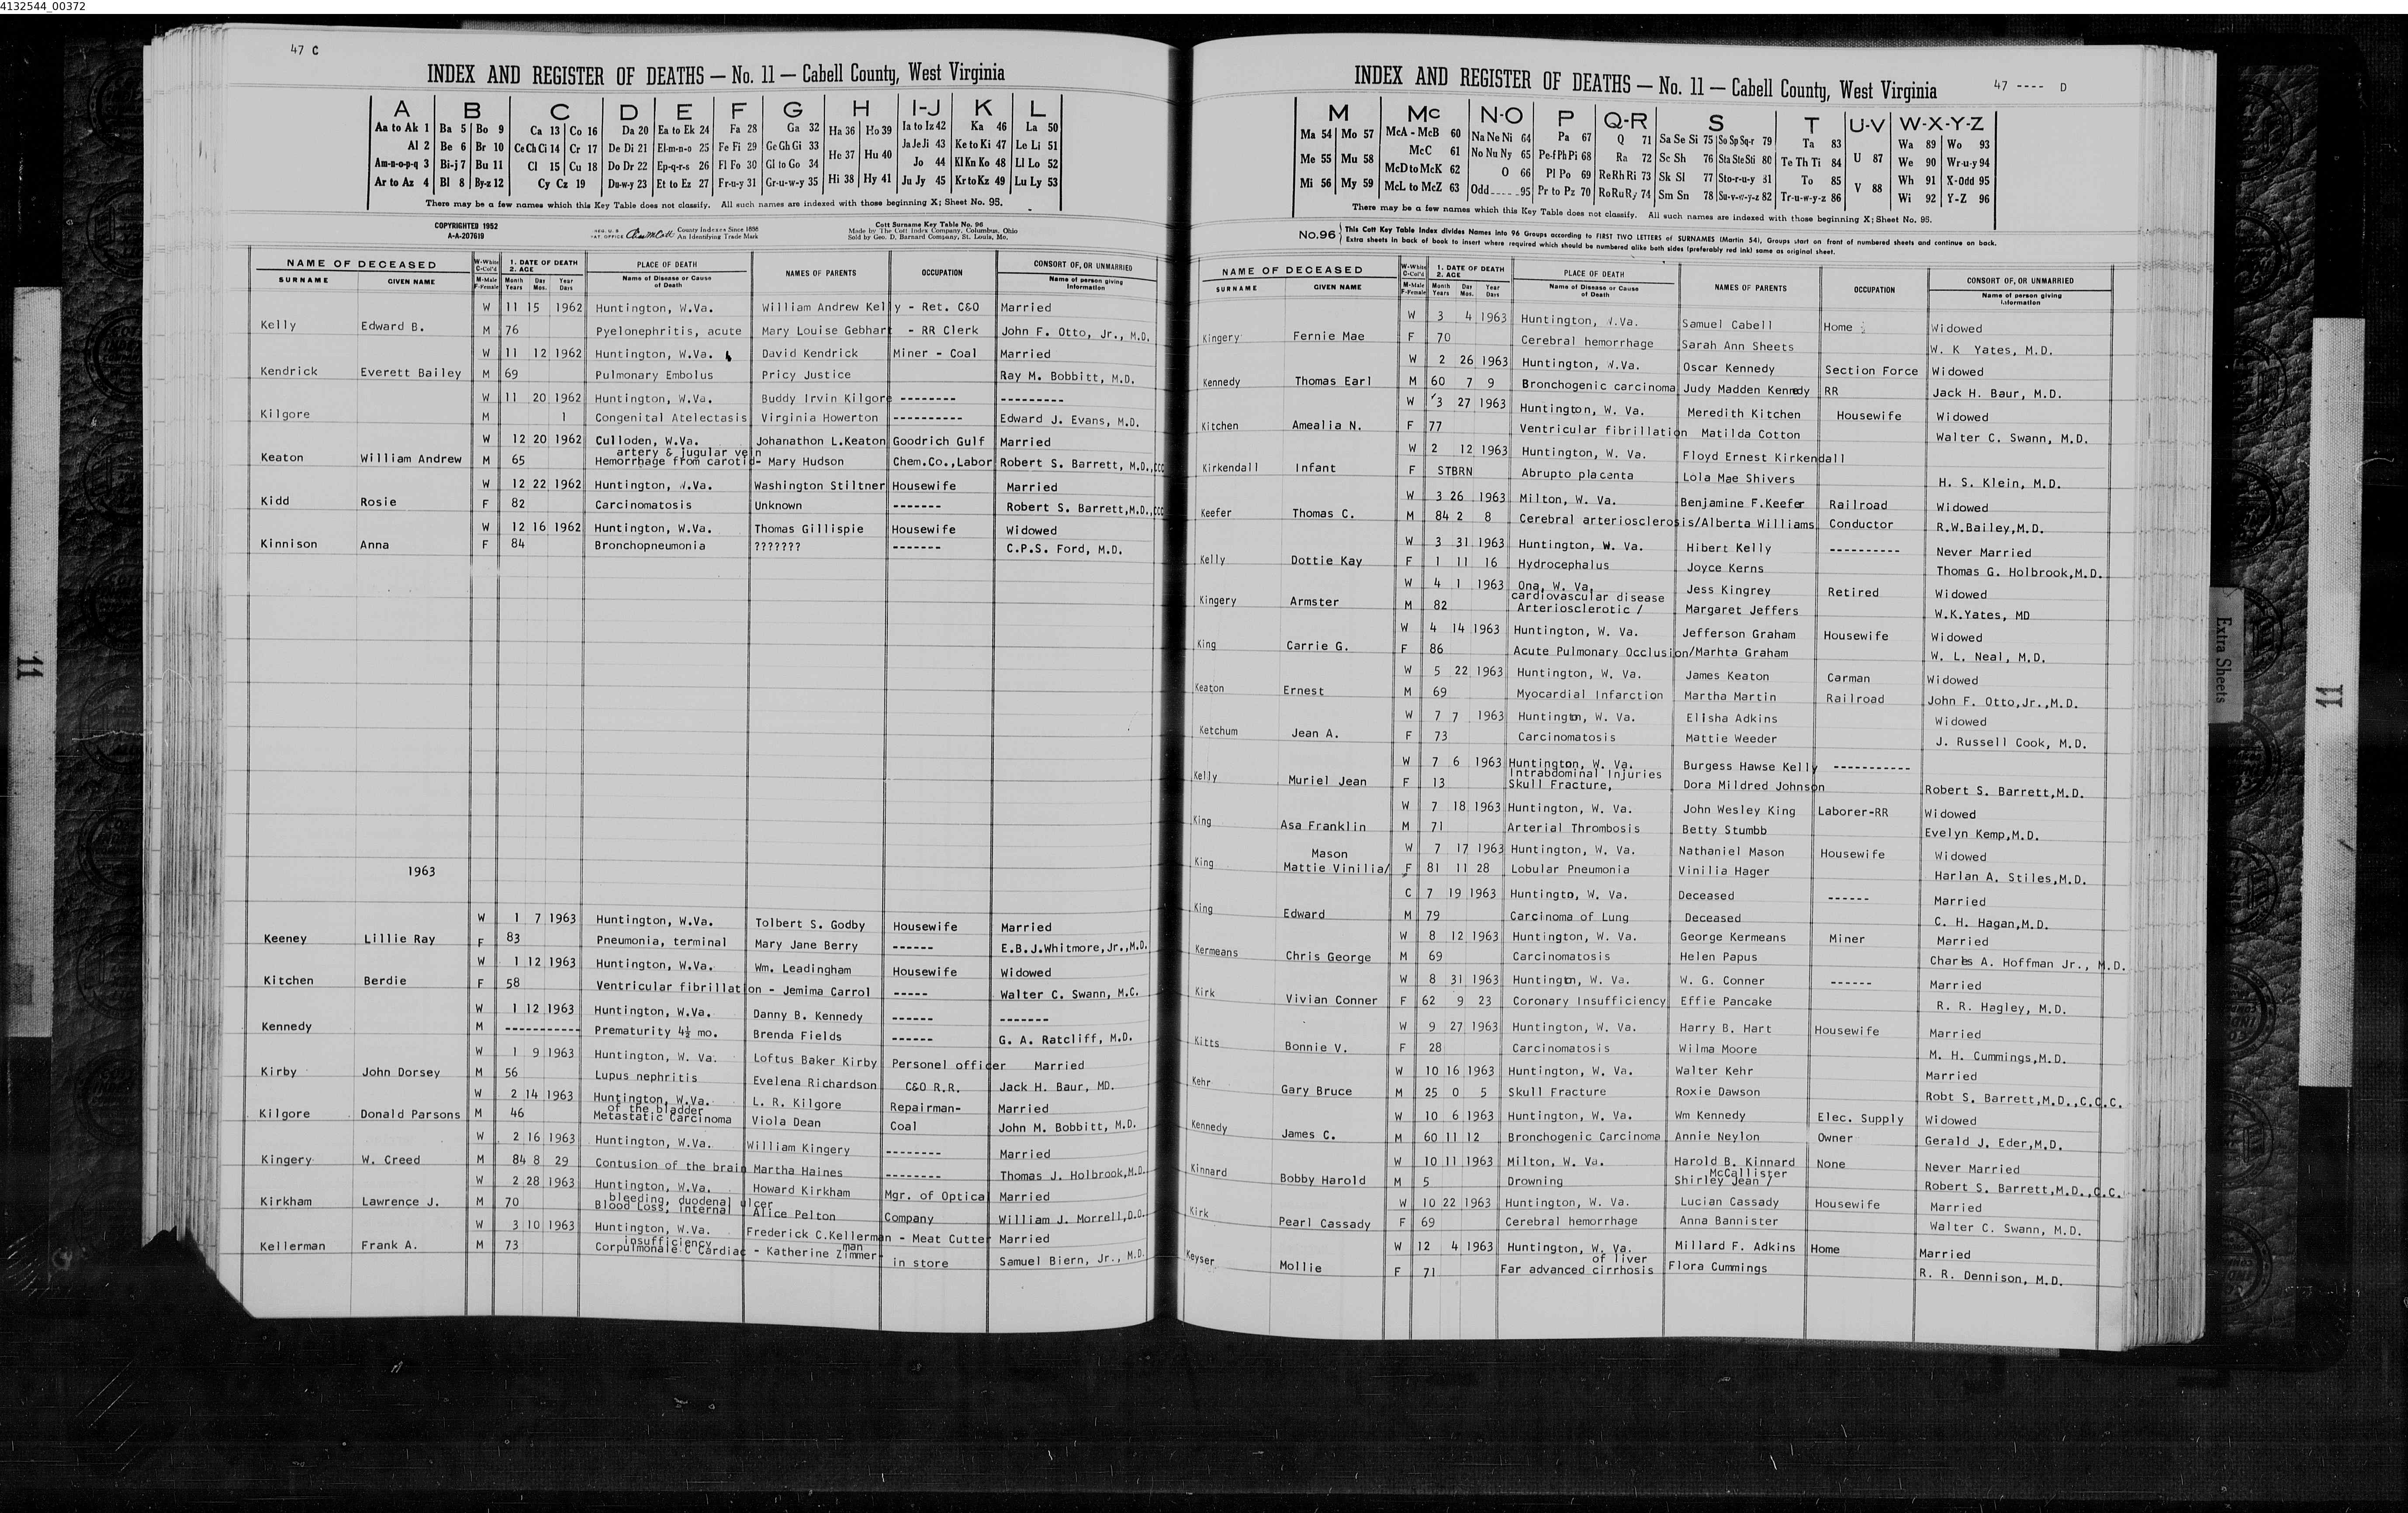 4132544_00372
47 C
INDEX AND REGISTER OF DEATHS — No. 11 — Cabell County, West Virginia
A B C D E F G H I-J K L
Aa to Ak 1 Ba 5 Bo 9 Ca 13 Co 16 Da 20 Ea to Ek 24 Fa 28 Ga 32 Ha 36 Ho 39 Ia to Iz 42 Ka 46 La 50
Al 2 Be 6 Br 10 Ce Ch Ci 14 Cr 17 De Di 21 El-m-n-o 25 Fe Fi 29 Ge Gh Gi 33 He 37 Hu 40 Ja Je Ji 43 Ke to Ki 47 Le Li 51
Am-n-o-p-q 3 Bi-j 7 Bu 11 Cl 15 Cu 18 Do Dr 22 Ep-q-r-s 26 Fl Fo 30 Gl to Go 34 Jo 44 Kl Kn Ko 48 Ll Lo 52
Ar to Az 4 Bl 8 By-z 12 Cy Cz 19 Du-w-y 23 Et to Ez 27 Fr-u-y 31 Gr-u-w-y 35 Hi 38 Hy 41 Ju Jy 45 Kr to Kz 49 Lu Ly 53
There may be a few names which this Key Table does not classify. All such names are indexed with those beginning X; Sheet No. 95.
COPYRIGHTED 1952
A-A-207619
County Indexes Since 1888
An Identifying Trade Mark
Cott Surname Key Table No. 96
Made by The Cott Index Company, Columbus, Ohio
Sold by Geo. D. Barnard Company, St. Louis, Mo.
NAME OF DECEASED W-White C-Col'd 1. DATE OF DEATH 2. AGE PLACE OF DEATH NAMES OF PARENTS OCCUPATION CONSORT OF, OR UNMARRIED
SURNAME GIVEN NAME M-Male F-Female Month Years Day Mos. Year Days Name of Disease or Cause of Death Name of person giving Information
W 11 15 1962 Huntington, W.Va. William Andrew Kelly - Ret. C&O Married
Kelly Edward B. M 76 Pyelonephritis, acute Mary Louise Gebhart - RR Clerk John F. Otto, Jr., M.D.
W 11 12 1962 Huntington, W.Va. David Kendrick Miner - Coal Married
Kendrick Everett Bailey M 69 Pulmonary Embolus Pricy Justice Ray M. Bobbitt, M.D.
W 11 20 1962 Huntington, W.Va. Buddy Irvin Kilgore -------- ---------
Kilgore M 1 Congenital Atelectasis Virginia Howerton ---------- Edward J. Evans, M.D.
W 12 20 1962 Culloden, W.Va. Johanathon L.Keaton Goodrich Gulf Married
artery & jugular vein
Keaton William Andrew M 65 Hemorrhage from carotid- Mary Hudson Chem.Co.,Labor Robert S. Barrett, M.D.,CCC
W 12 22 1962 Huntington, W.Va. Washington Stiltner Housewife Married
Kidd Rosie F 82 Carcinomatosis Unknown ------- Robert S. Barrett,M.D.,CCC
W 12 16 1962 Huntington, W.Va. Thomas Gillispie Housewife Widowed
Kinnison Anna F 84 Bronchopneumonia ??????? ------- C.P.S. Ford, M.D.
1963
W 1 7 1963 Huntington, W.Va. Tolbert S. Godby Housewife Married
Keeney Lillie Ray F 83 Pneumonia, terminal Mary Jane Berry ------ E.B.J.Whitmore,Jr.,M.D.
W 1 12 1963 Huntington, W.Va. Wm. Leadingham Housewife Widowed
Kitchen Berdie F 58 Ventricular fibrillation - Jemima Carrol ----- Walter C. Swann, M.C.
W 1 12 1963 Huntington, W.Va. Danny B. Kennedy ------ -------
Kennedy M ----------- Prematurity 4½ mo. Brenda Fields ------ G. A. Ratcliff, M.D.
W 1 9 1963 Huntington, W. Va. Loftus Baker Kirby Personel officer Married
Kirby John Dorsey M 56 Lupus nephritis Evelena Richardson C&O R.R. Jack H. Baur, MD.
W 2 14 1963 Huntington, W.Va. L. R. Kilgore Repairman- Married
of the bladder
Kilgore Donald Parsons M 46 Metastatic Carcinoma Viola Dean Coal John M. Bobbitt, M.D.
W 2 16 1963 Huntington, W.Va. William Kingery -------- Married
Kingery W. Creed M 84 8 29 Contusion of the brain Martha Haines -------- Thomas J. Holbrook,M.D.
W 2 28 1963 Huntington, W.Va. Howard Kirkham Mgr. of Optical Married
bleeding, duodenal ulcer
Kirkham Lawrence J. M 70 Blood Loss, internal Alice Pelton Company William J. Morrell,D.O.
W 3 10 1963 Huntington, W.Va. Frederick C.Kellerman - Meat Cutter Married
insufficiency man
Kellerman Frank A. M 73 Corpulmonale C Cardiac - Katherine Zimmer in store Samuel Biern, Jr., M.D.
INDEX AND REGISTER OF DEATHS — No. 11 — Cabell County, West Virginia 47 ---- D
M Mc N-O P Q-R S T U-V W-X-Y-Z
Ma 54 Mo 57 McA - McB 60 Na Ne Ni 64 Pa 67 Q 71 Sa Se Si 75 So Sp Sq-r 79 Ta 83 Wa 89 Wo 93
Me 55 Mu 58 McC 61 No Nu Ny 65 Pe-f Ph Pi 68 Ra 72 Sc Sh 76 Sta Ste Sti 80 Te Th Ti 84 U 87 We 90 Wr-u-y 94
McD to McK 62 O 66 Pl Po 69 Re Rh Ri 73 Sk Sl 77 Sto-r-u-y 81 To 85 Wh 91 X-Odd 95
Mi 56 My 59 McL to McZ 63 Odd 95 Pr to Pz 70 Ro Ru Ry 74 Sm Sn 78 Su-v-w-y-z 82 Tr-u-w-y-z 86 V 88 Wi 92 Y-Z 96
There may be a few names which this Key Table does not classify. All such names are indexed with those beginning X; Sheet No. 95.
No.96 This Cott Key Table Index divides Names into 96 Groups according to FIRST TWO LETTERS of SURNAMES (Martin 54), Groups start on front of numbered sheets and continue on back.
Extra sheets in back of book to insert where required which should be numbered alike both sides (preferably red ink) same as original sheet.
NAME OF DECEASED W-White C-Col'd 1. DATE OF DEATH 2. AGE PLACE OF DEATH NAMES OF PARENTS OCCUPATION CONSORT OF, OR UNMARRIED
SURNAME GIVEN NAME M-Male F-Female Month Years Day Mos. Year Days Name of Disease or Cause of Death Name of person giving Information
W 3 4 1963 Huntington, W.Va. Samuel Cabell Home Widowed
Kingery Fernie Mae F 70 Cerebral hemorrhage Sarah Ann Sheets W. K Yates, M.D.
W 2 26 1963 Huntington, W.Va. Oscar Kennedy Section Force Widowed
Kennedy Thomas Earl M 60 7 9 Bronchogenic carcinoma Judy Madden Kennedy RR Jack H. Baur, M.D.
W 3 27 1963 Huntington, W. Va. Meredith Kitchen Housewife Widowed
Kitchen Amealia N. F 77 Ventricular fibrillation Matilda Cotton Walter C. Swann, M.D.
W 2 12 1963 Huntington, W. Va. Floyd Ernest Kirkendall
Kirkendall Infant F STBRN Abrupto placenta Lola Mae Shivers H. S. Klein, M.D.
W 3 26 1963 Milton, W. Va. Benjamine F.Keefer Railroad Widowed
Keefer Thomas C. M 84 2 8 Cerebral arteriosclerosis/Alberta Williams Conductor R.W.Bailey,M.D.
W 3 31 1963 Huntington, W. Va. Hibert Kelly ---------- Never Married
Kelly Dottie Kay F 1 11 16 Hydrocephalus Joyce Kerns Thomas G. Holbrook,M.D.
W 4 1 1963 Ona, W. Va. Jess Kingrey Retired Widowed
cardiovascular disease
Kingery Armster M 82 Arteriosclerotic / Margaret Jeffers W.K.Yates, MD
W 4 14 1963 Huntington, W. Va. Jefferson Graham Housewife Widowed
King Carrie G. F 86 Acute Pulmonary Occlusion/Marhta Graham W. L. Neal, M.D.
W 5 22 1963 Huntington, W. Va. James Keaton Carman Widowed
Keaton Ernest M 69 Myocardial Infarction Martha Martin Railroad John F. Otto,Jr.,M.D.
W 7 7 1963 Huntington, W. Va. Elisha Adkins Widowed
Ketchum Jean A. F 73 Carcinomatosis Mattie Weeder J. Russell Cook, M.D.
W 7 6 1963 Huntington, W. Va. Burgess Hawse Kelly -----------
Intrabdominal Injuries
Kelly Muriel Jean F 13 Skull Fracture, Dora Mildred Johnson Robert S. Barrett,M.D.
W 7 18 1963 Huntington, W. Va. John Wesley King Laborer-RR Widowed
King Asa Franklin M 71 Arterial Thrombosis Betty Stumbb Evelyn Kemp,M.D.
Mason W 7 17 1963 Huntington, W. Va. Nathaniel Mason Housewife Widowed
King Mattie Vinilia/ F 81 11 28 Lobular Pneumonia Vinilia Hager Harlan A. Stiles,M.D.
C 7 19 1963 Huntingto, W. Va. Deceased ------ Married
King Edward M 79 Carcinoma of Lung Deceased C. H. Hagan,M.D.
W 8 12 1963 Huntington, W. Va. George Kermeans Miner Married
Kermeans Chris George M 69 Carcinomatosis Helen Papus Charles A. Hoffman Jr., M.D.
W 8 31 1963 Huntington, W. Va. W. G. Conner ------ Married
Kirk Vivian Conner F 62 9 23 Coronary Insufficiency Effie Pancake R. R. Hagley, M.D.
W 9 27 1963 Huntington, W. Va. Harry B. Hart Housewife Married
Kitts Bonnie V. F 28 Carcinomatosis Wilma Moore M. H. Cummings,M.D.
W 10 16 1963 Huntington, W. Va. Walter Kehr Married
Kehr Gary Bruce M 25 0 5 Skull Fracture Roxie Dawson Robt S. Barrett,M.D.,C.C.C.
W 10 6 1963 Huntington, W. Va. Wm Kennedy Elec. Supply Widowed
Kennedy James C. M 60 11 12 Bronchogenic Carcinoma Annie Neylon Owner Gerald J. Eder,M.D.
W 10 11 1963 Milton, W. Va. Harold B. Kinnard None Never Married
McCallister
Kinnard Bobby Harold M 5 Drowning Shirley Jean / Robert S. Barrett,M.D.,C.C.
W 10 22 1963 Huntington, W. Va. Lucian Cassady Housewife Married
Kirk Pearl Cassady F 69 Cerebral hemorrhage Anna Bannister Walter C. Swann, M.D.
W 12 4 1963 Huntington, W. Va. Millard F. Adkins Home Married
of liver
Keyser Mollie F 71 Far advanced cirrhosis Flora Cummings R. R. Dennison, M.D.
Extra Sheets
11
11